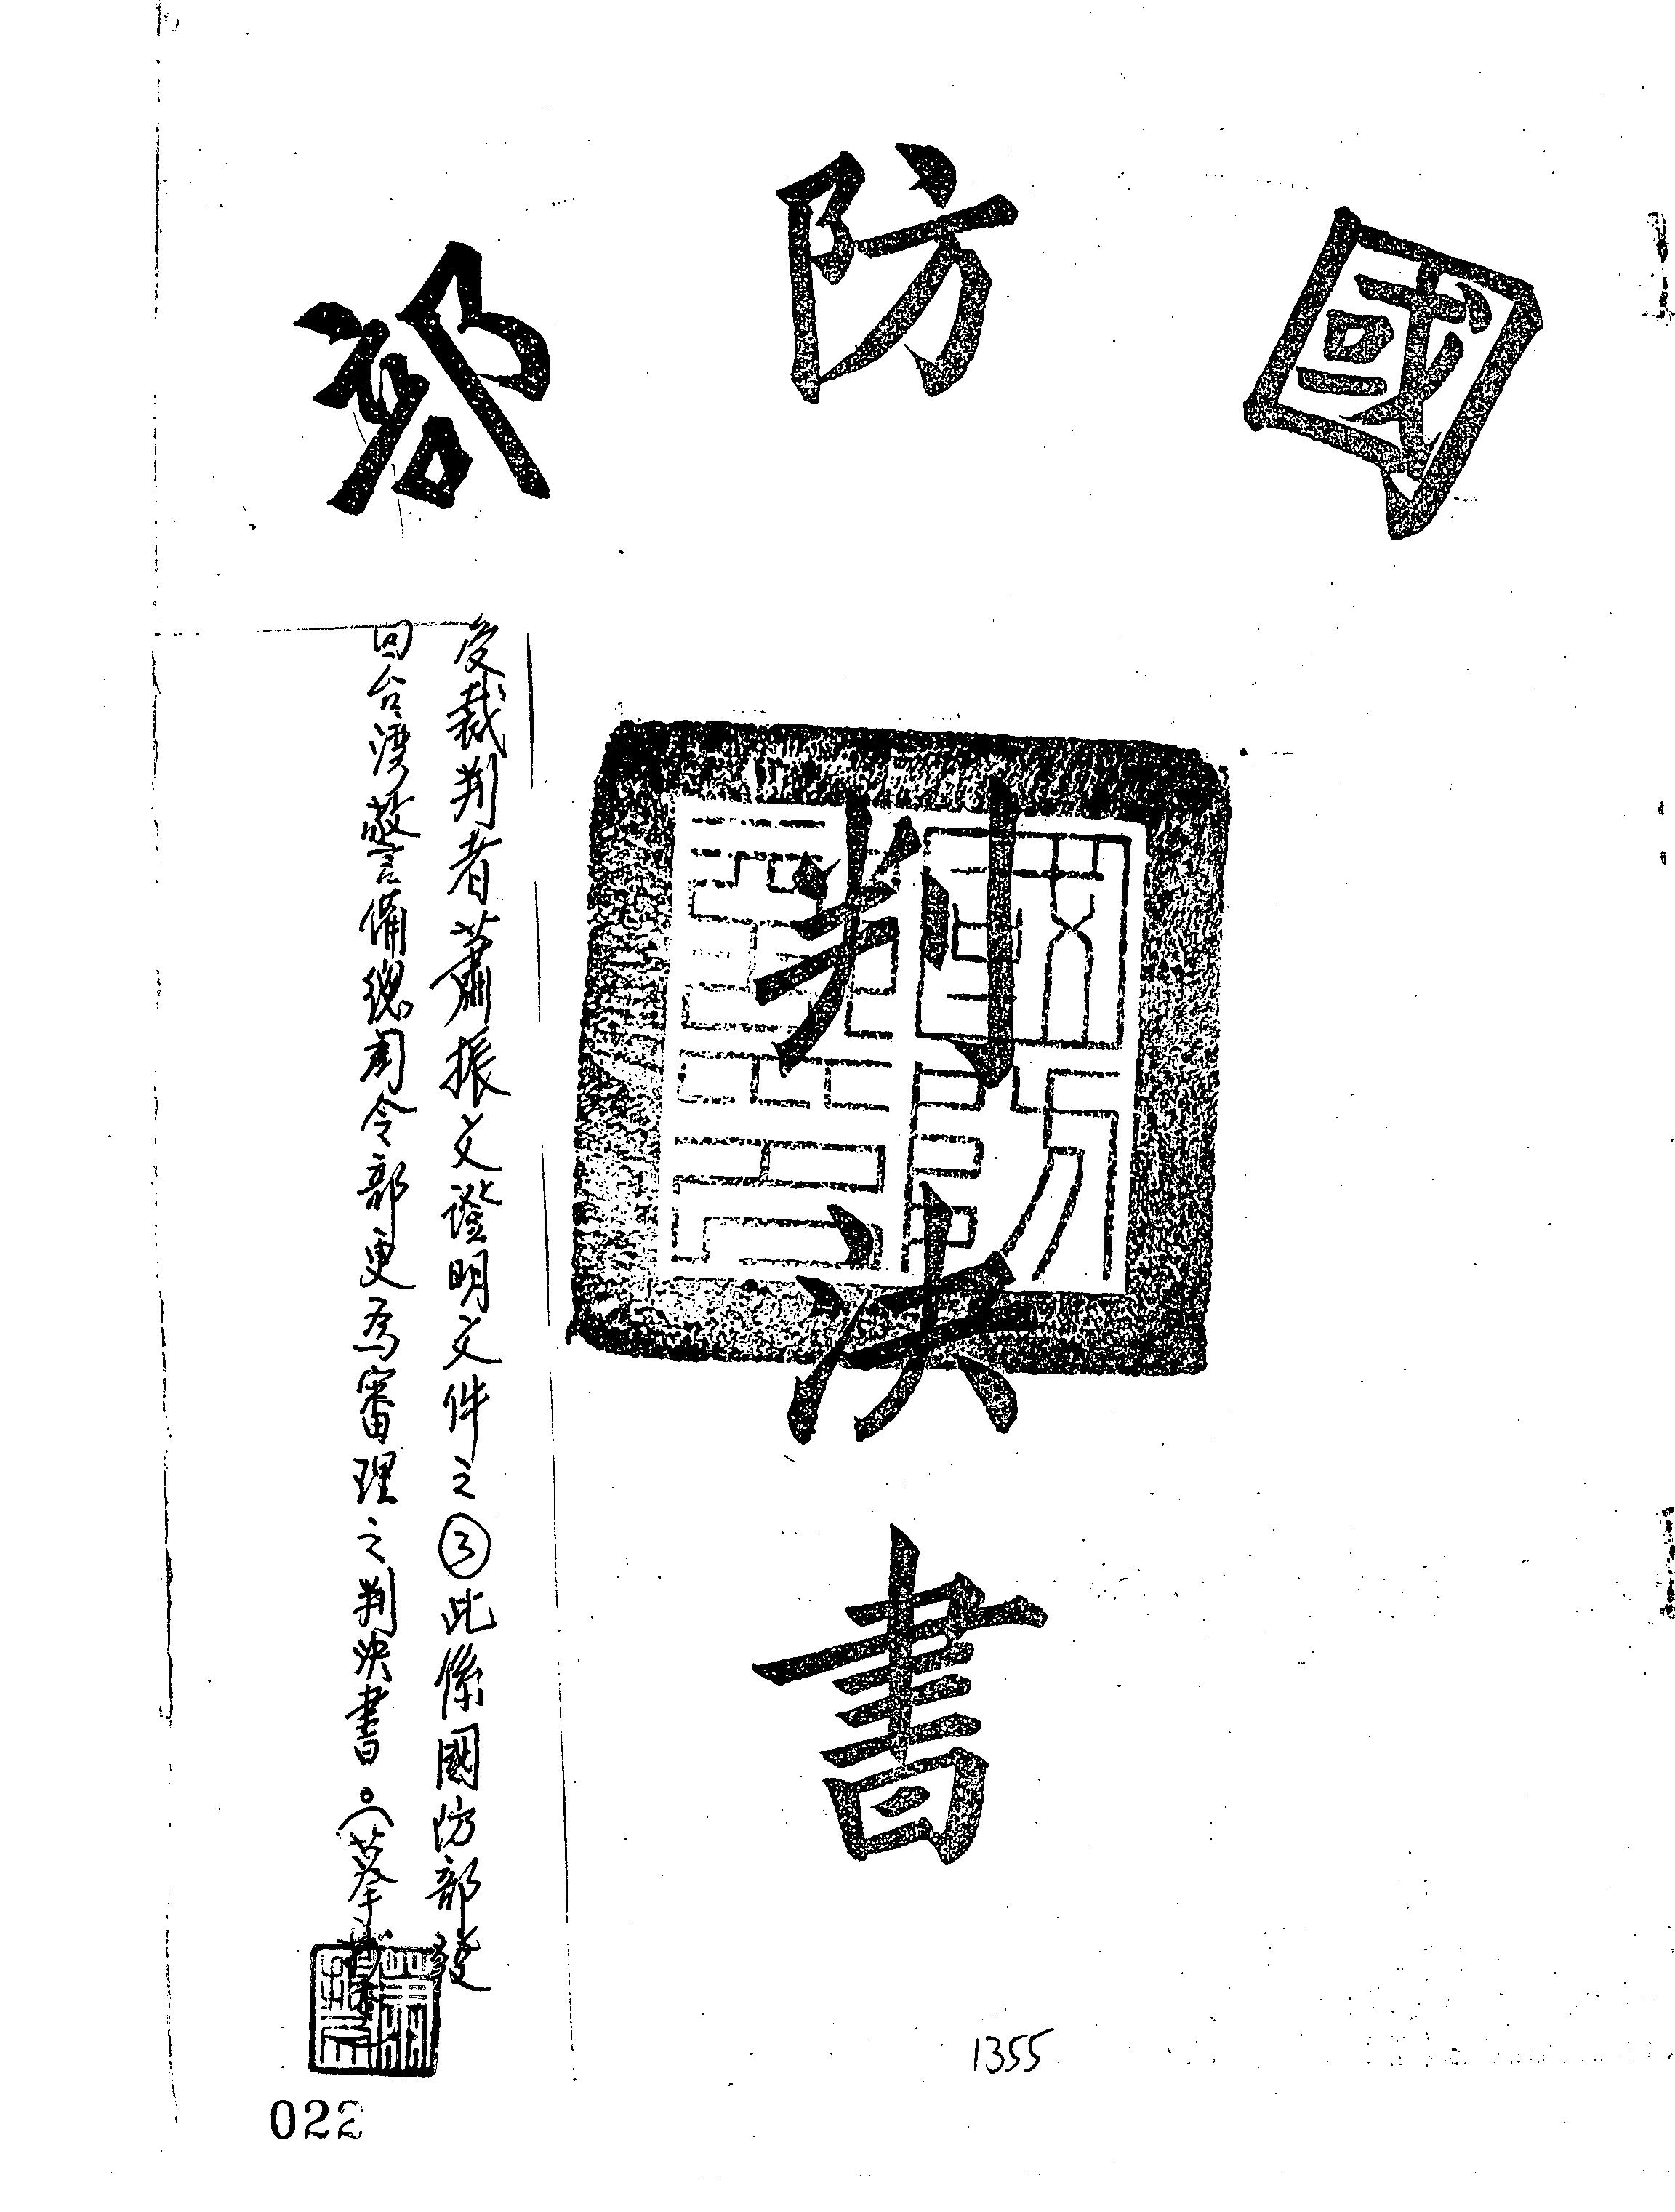 國防部
判決書
受裁判者蕭振文證明文件之③此係國防部發
回台灣警備總司令部更為審理之判決書。
1355
022